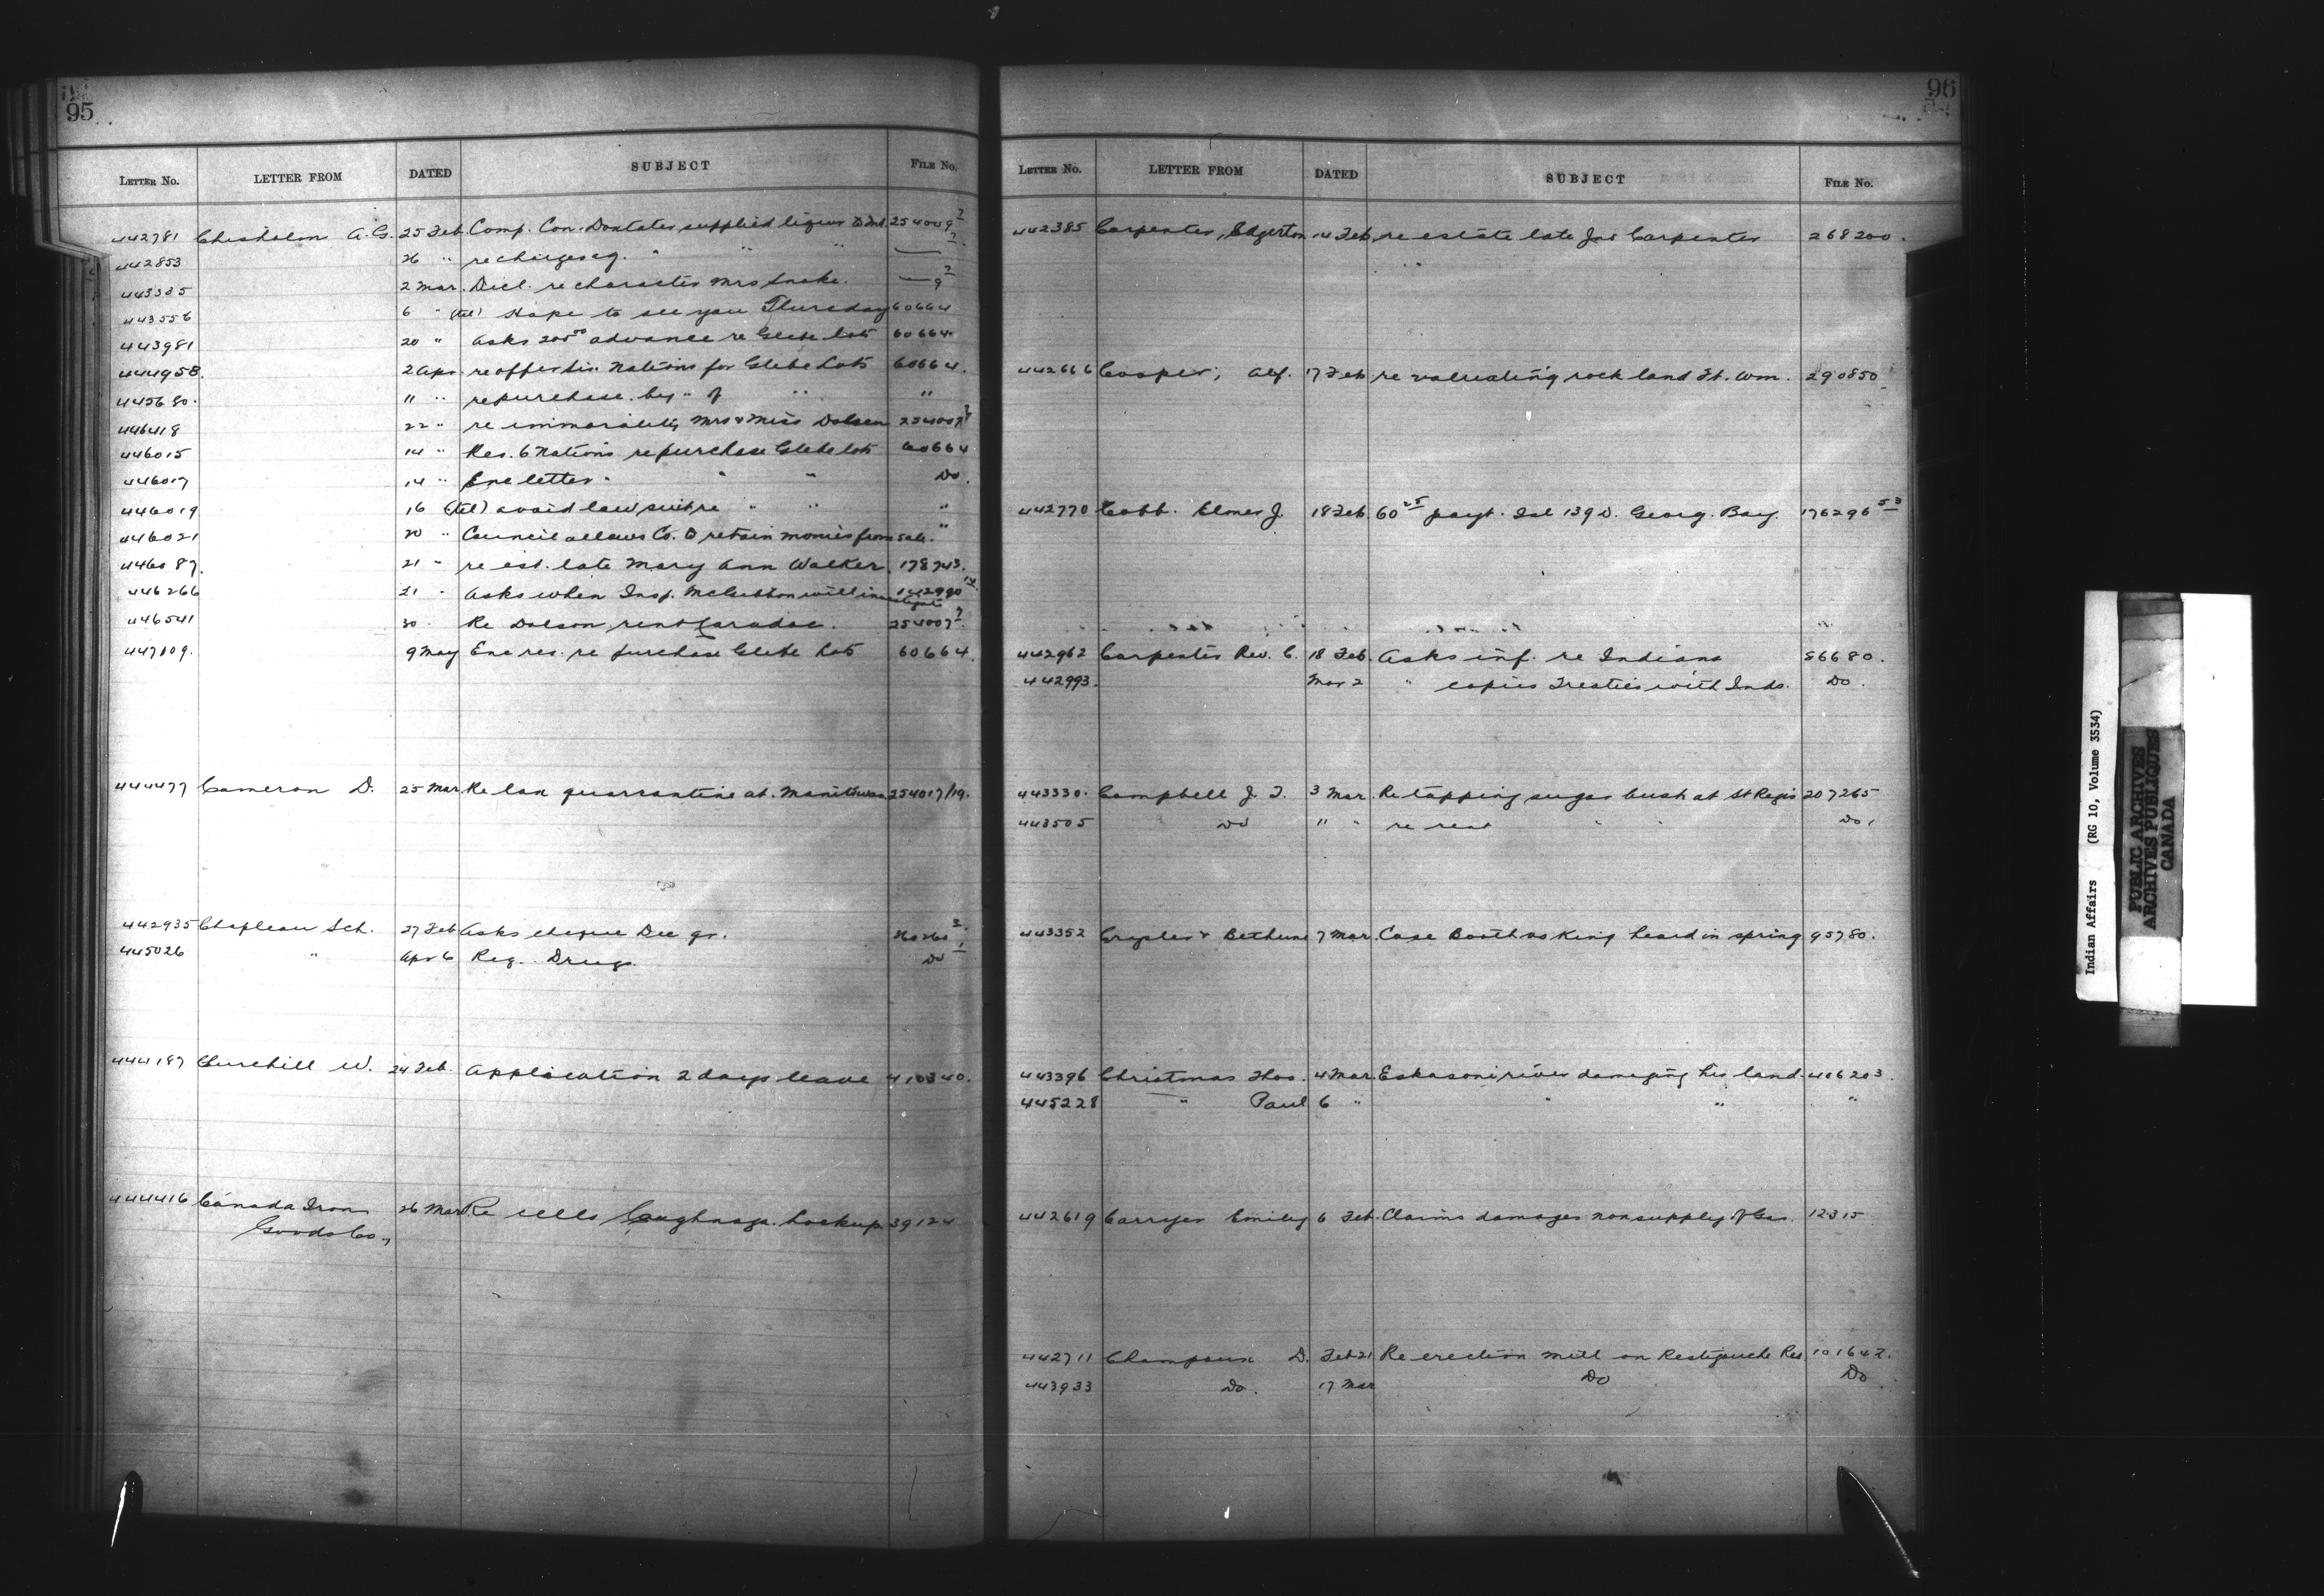 95
LETTER No. LETTER FROM DATED SUBJECT FILE No.
442781 Chisholm A.G. 25 Feb. Comp. Con. Doxtater supplied liquor to Ind. 254009 2
442853 26 " re charges ag. " " " 2
443385 2 Mar. Decl. re character Mrs Snake. 9 2
443556 6 " (tel) Hope to see you Thursday 60664
443981 20 " Asks 200 00 advance re Glebe lots 60664
444958. 2 Apr. re offer Nations for Glebe Lots 60664.
445680. 11 " re purchase by " of " "
446418 22 " re immorality Mrs & Miss Dolson 254007
446015 14 " Res. 6 Nations re purchase Glebe lots 60664
446017 14 " Enc letter " " " Do.
446019 16 (tel) avoid law suit re " " "
446021 20 " Council allows Co. to retain monies from sale. "
446087. 21 " re est. late Mary Ann Walker. 178743.
446266 21 " Asks when Insp. McGibbon will investigate 142990
446541 30 " Re Dolson rent Caradoc. 254007 2
447109. 9 May Enc res. re purchase Glebe Lots 60664.
444477 Cameron D. 25 Mar. Re quarrantine at 254017/19.
442935 Chapleau Sch. 27 Feb Asks cheque Dec qr.
445026 " Apr 6 Req. Drugs. Do 1
444187 Churchill W. 24 Feb. Application 2 days leave 410340.
444416 Canada Iron 26 Mar Re cells Caughnaga. Lockup 39124
Goods Co.,
96
LETTER No. LETTER FROM DATED SUBJECT FILE No.
442385 Carpenter, Edgerton 14 Feb. re estate late Jno Carpenter 268200.
442666 Cooper, Alf. 17 Feb. re valuating rock land Ft. Wm. 290850
442770 Cobb. Elmer J. 18 Feb. 60 25 payt. Isl 139 D. Georg. Bay. 176296 53
442962 Carpenter Rev. C. 18 Feb. Asks inf. re Indians 86680.
442993. Mar 2 " copies Treaties with Inds. Do.
443330. Campbell J. T. 3 Mar. Re tapping sugar bush at St Regis 207265
443505 Do " " re rent " " Do.
443352 Crysler & Bethune 7 Mar. Case Booth vs King heard in spring 95780.
443396 Christmas Thos. 4 Mar. Eskasoni river damaging his land. 406203.
445228 " Paul 6 " " " "
442619 Carryer Emily 6 Feb. Claims damages nonsupply of Gas. 12315
442711 Champoux D. Feb 21 Re erection mill on Restigouche Res. 101642.
443933 Do. 17 Mar Do Do.
Indian Affairs (RG 10, Volume 3534)
PUBLIC ARCHIVES
ARCHIVES PUBLIQUES
CANADA